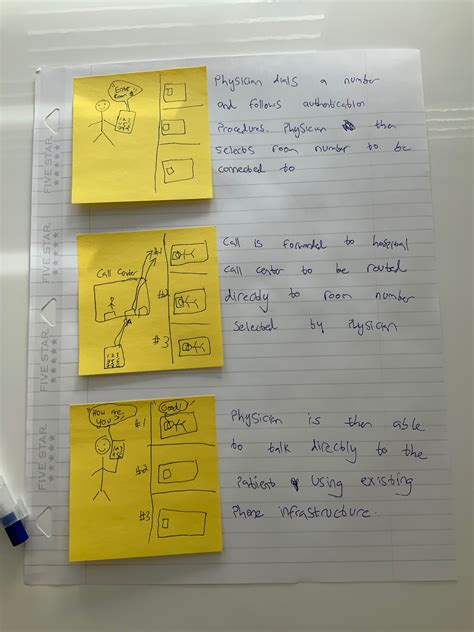 Enter
Room #
Physician dials a number
and follows authentication
Procedures. Physician then
selects room number to be
connected to
Call Center
#1
#2
#3
Call is forwarded to hospital
call center to be routed
directly to room number
selected by Physician
How are
you?
Good!
#1
#2
#3
Physician is then able
to talk directly to the
Patient using existing
Phone infrastructure.
FIVE STAR
FIVE STAR
FIVE STAR